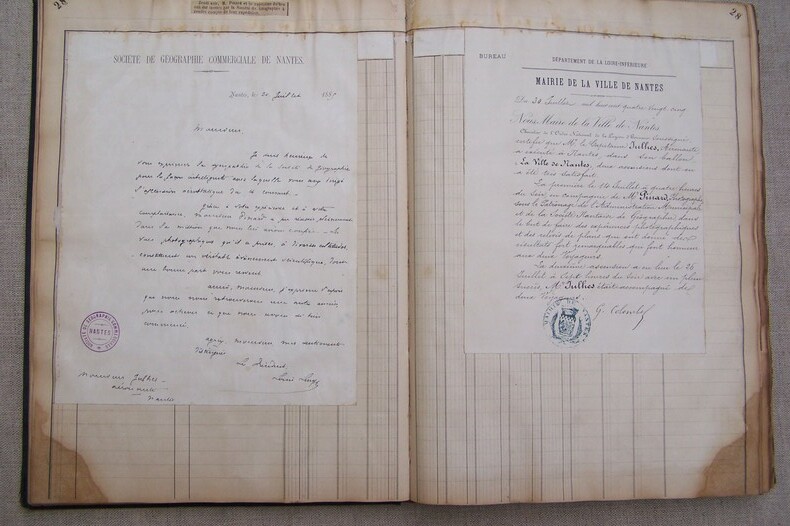 28
SOCIÉTÉ DE GÉOGRAPHIE COMMERCIALE DE NANTES.
Nantes, le 30 Juillet 188
Monsieur
Je suis heureux de
vous exprimer la sympathie de la Société de Géographie
pour la façon intelligente avec laquelle vous avez dirigé
l'ascension aérostatique du 14 courant.
Grâce à votre expérience et à votre
complaisance, Monsieur Pinard a pu réussir pleinement
dans la mission que nous lui avions confiée. Les
vues photographiques qu'il a prises, à diverses
constituent un véritable événement scientifique, dont
une bonne part vous revient
aussi, Monsieur, j'exprime l'espoir
que nous nous retrouverons une autre année,
plus
Monsieur
Le Président
Louis
NANTES
Monsieur Julhes
aéronaute
Nantes
28
BUREAU
DÉPARTEMENT DE LA LOIRE-INFÉRIEURE
MAIRIE DE LA VILLE DE NANTES
Du 30 Juillet mil huit cent quatre vingt cinq
Nous Maire de la Ville de Nantes
Chevalier de l'Ordre National de la Légion d'honneur Soussigné
certifie que Mr. le Capitaine Julhes, Aéronaute
a exécuté à Nantes dans son ballon
La Ville de Nantes, deux ascensions dont on
a été très satisfait.
La première le 14 Juillet à quatre heures
du Soir en compagnie de Mr Pinard Photographe
sous le Patronage de l'Administration Municipale
et de la Société Nantaise de Géographie, dans
le but de faire des expériences photographiques
et des relevés de plans qui ont donné des
résultats fort remarquables qui font honneur
aux deux Voyageurs.
La deuxième ascension a eu lieu le 26
Juillet à Sept heures du Soir avec un plein
succès, Mr Julhes était accompagné de
deux Voyageurs.
G. Colombel